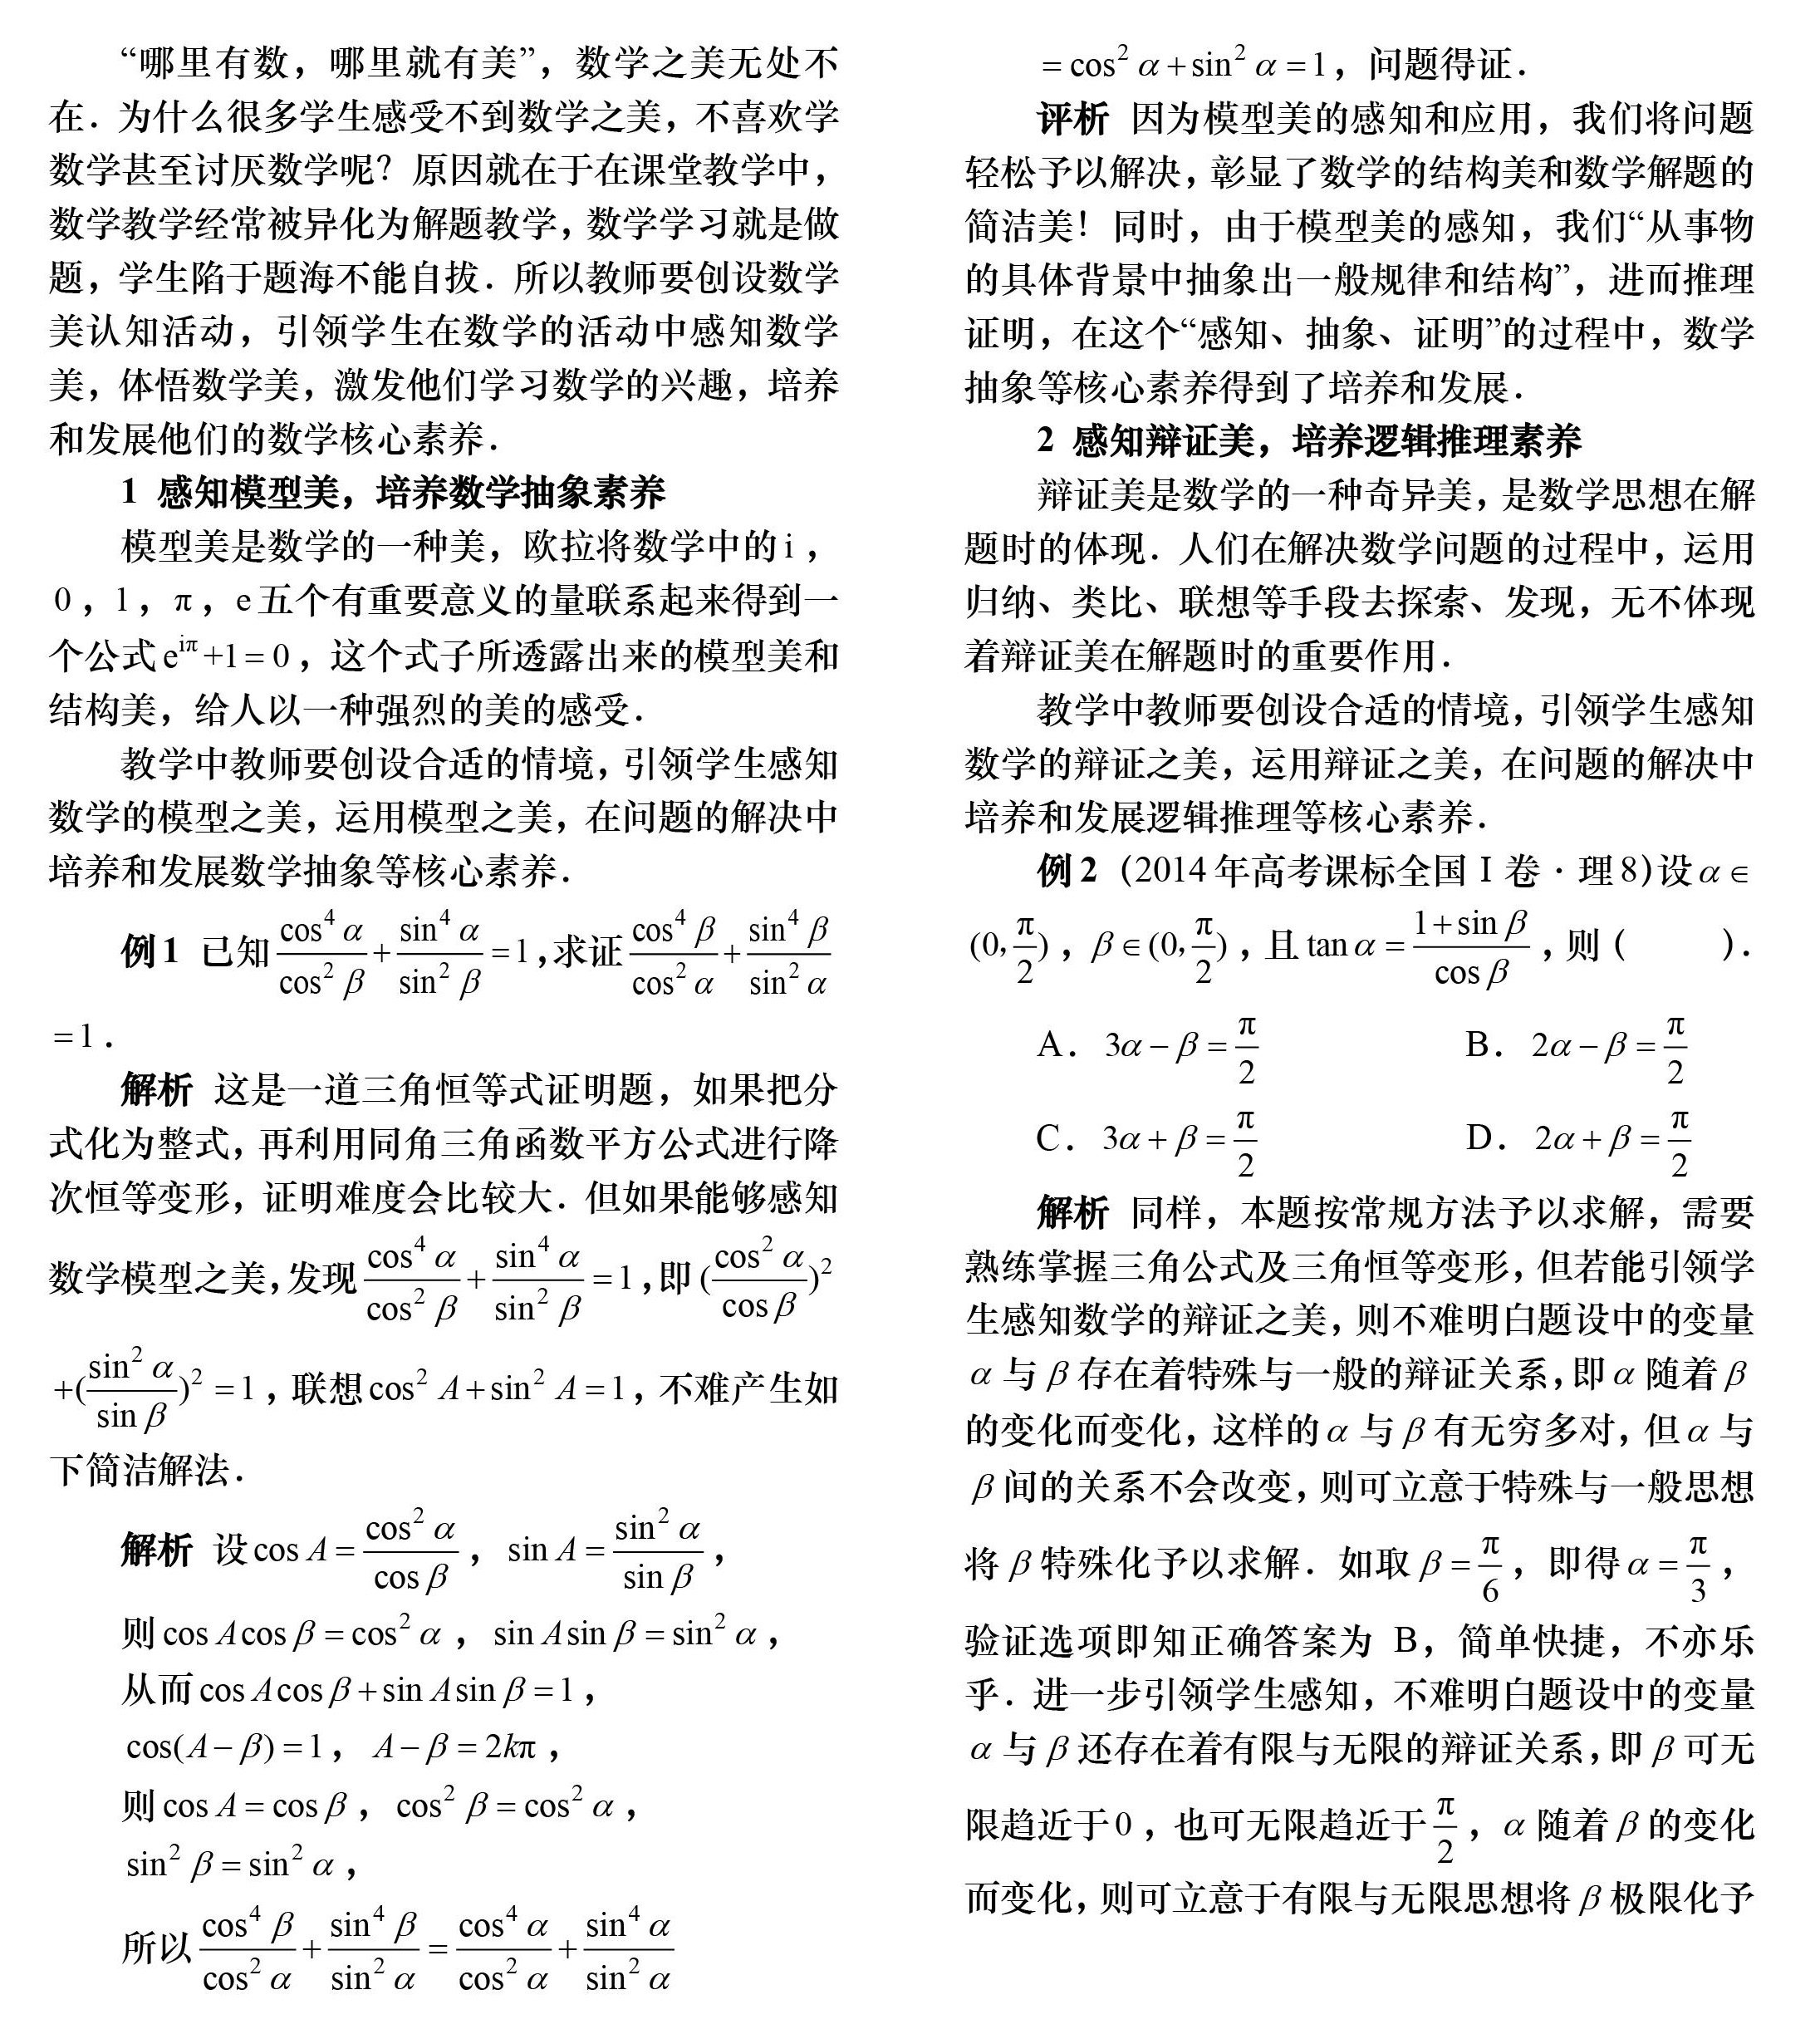 “哪里有数，哪里就有美”，数学之美无处不
在．为什么很多学生感受不到数学之美，不喜欢学
数学甚至讨厌数学呢？原因就在于在课堂教学中，
数学教学经常被异化为解题教学，数学学习就是做
题，学生陷于题海不能自拔．所以教师要创设数学
美认知活动，引领学生在数学的活动中感知数学
美，体悟数学美，激发他们学习数学的兴趣，培养
和发展他们的数学核心素养．
1 感知模型美，培养数学抽象素养
模型美是数学的一种美，欧拉将数学中的 i，
0，1，π，e 五个有重要意义的量联系起来得到一
个公式 $e^{iπ}+1=0$，这个式子所透露出来的模型美和
结构美，给人以一种强烈的美的感受．
教学中教师要创设合适的情境，引领学生感知
数学的模型之美，运用模型之美，在问题的解决中
培养和发展数学抽象等核心素养．
例1 已知 $\frac{\cos^4 α}{\cos^2 β}+\frac{\sin^4 α}{\sin^2 β}=1$，求证 $\frac{\cos^4 β}{\cos^2 α}+\frac{\sin^4 β}{\sin^2 α}$
$=1$．
解析 这是一道三角恒等式证明题，如果把分
式化为整式，再利用同角三角函数平方公式进行降
次恒等变形，证明难度会比较大．但如果能够感知
数学模型之美，发现 $\frac{\cos^4 α}{\cos^2 β}+\frac{\sin^4 α}{\sin^2 β}=1$，即 $(\frac{\cos^2 α}{\cos β})^2$
$+(\frac{\sin^2 α}{\sin β})^2=1$，联想 $\cos^2 A+\sin^2 A=1$，不难产生如
下简洁解法．
解析 设 $\cos A=\frac{\cos^2 α}{\cos β}$，$\sin A=\frac{\sin^2 α}{\sin β}$，
则 $\cos A\cos β=\cos^2 α$，$\sin A\sin β=\sin^2 α$，
从而 $\cos A\cos β+\sin A\sin β=1$，
$\cos(A-β)=1$，$A-β=2kπ$，
则 $\cos A=\cos β$，$\cos^2 β=\cos^2 α$，
$\sin^2 β=\sin^2 α$，
所以 $\frac{\cos^4 β}{\cos^2 α}+\frac{\sin^4 β}{\sin^2 α}=\frac{\cos^4 α}{\cos^2 α}+\frac{\sin^4 α}{\sin^2 α}$
$=\cos^2 α+\sin^2 α=1$，问题得证．
评析 因为模型美的感知和应用，我们将问题
轻松予以解决，彰显了数学的结构美和数学解题的
简洁美！同时，由于模型美的感知，我们“从事物
的具体背景中抽象出一般规律和结构”，进而推理
证明，在这个“感知、抽象、证明”的过程中，数学
抽象等核心素养得到了培养和发展．
2 感知辩证美，培养逻辑推理素养
辩证美是数学的一种奇异美，是数学思想在解
题时的体现．人们在解决数学问题的过程中，运用
归纳、类比、联想等手段去探索、发现，无不体现
着辩证美在解题时的重要作用．
教学中教师要创设合适的情境，引领学生感知
数学的辩证之美，运用辩证之美，在问题的解决中
培养和发展逻辑推理等核心素养．
例2（2014年高考课标全国Ⅰ卷·理8）设 $α∈$
$(0,\frac{π}{2})$，$β∈(0,\frac{π}{2})$，且 $\tan α=\frac{1+\sin β}{\cos β}$，则（　　）．
A．$3α-β=\frac{π}{2}$　　B．$2α-β=\frac{π}{2}$
C．$3α+β=\frac{π}{2}$　　D．$2α+β=\frac{π}{2}$
解析 同样，本题按常规方法予以求解，需要
熟练掌握三角公式及三角恒等变形，但若能引领学
生感知数学的辩证之美，则不难明白题设中的变量
α 与 β 存在着特殊与一般的辩证关系，即 α 随着 β
的变化而变化，这样的 α 与 β 有无穷多对，但 α 与
β 间的关系不会改变，则可立意于特殊与一般思想
将 β 特殊化予以求解．如取 $β=\frac{π}{6}$，即得 $α=\frac{π}{3}$，
验证选项即知正确答案为 B，简单快捷，不亦乐
乎．进一步引领学生感知，不难明白题设中的变量
α 与 β 还存在着有限与无限的辩证关系，即 β 可无
限趋近于 0，也可无限趋近于 $\frac{π}{2}$，α 随着 β 的变化
而变化，则可立意于有限与无限思想将 β 极限化予